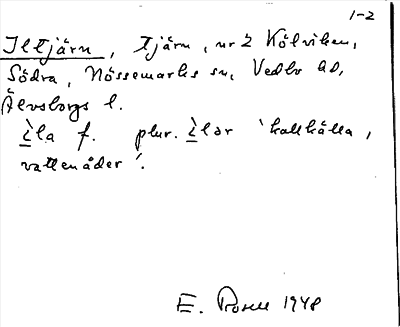 1-2
Iltjärn, tjärn, nr 2 Kölviken,
Södra, Nössemarks sn, Vedbo hd,
Älvsborgs l.
ìla f. plur. ìlar 'kallkälla,
vattenåder'.
E. Rosell 1948